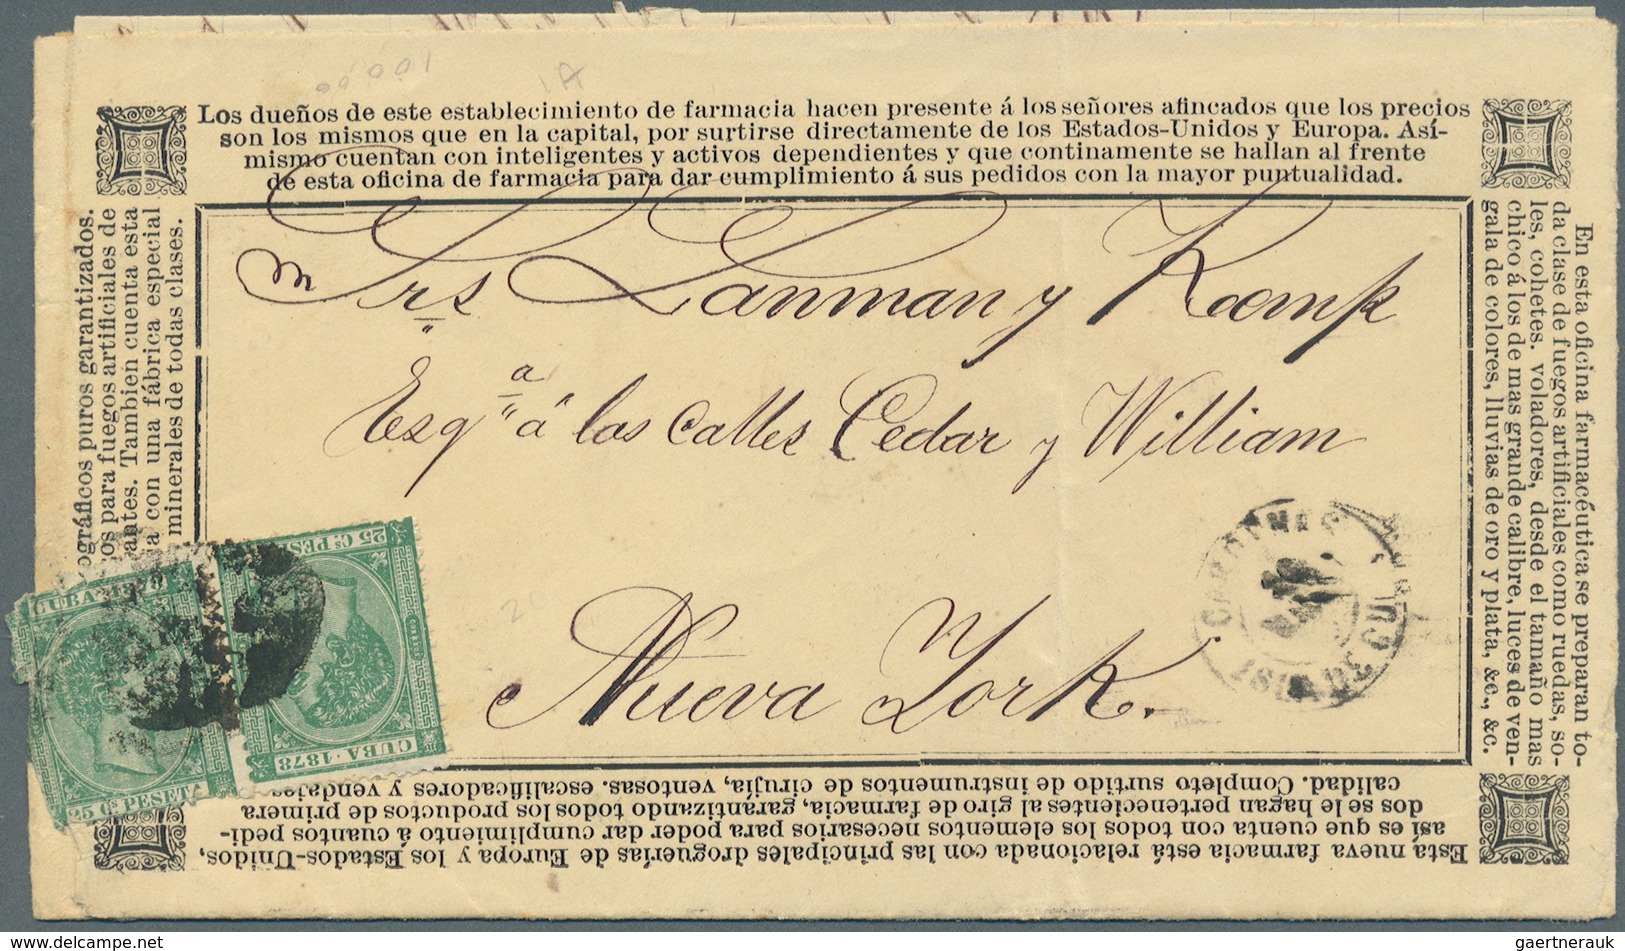 Los dueños de este establecimiento de farmacia hacen presente á los señores afincados que los precios
son los mismos que en la capital, por surtirse directamente de los Estados-Unidos y Europa. Así-
mismo cuentan con inteligentes y activos dependientes y que continamente se hallan al frente
de esta oficina de farmacia para dar cumplimiento á sus pedidos con la mayor puntualidad.
ográficos puros garantizados.
os para fuegos artificiales de
antes. Tambien cuenta esta
ia con una fábrica especial
minerales de todas clases.
Srs Lanman y Kemp
Esqa á las calles Cedar y William
Nueva York.
En esta oficina farmacéutica se preparan to-
da clase de fuegos artificiales como ruedas, so-
les, cohetes. voladores, desde el tamaño mas
chico á los de mas grande calibre, luces de ven-
gala de colores, lluvias de oro y plata, &c., &c.
ISLA DE CUBA
25 Cs PESE
CUBA·1878
CUBA·1878
25 Cs PESETA
Esta nueva farmacia está relacionada con las principales droguerías de Europa y los Estados-Unidos,
así es que cuenta con todos los elementos necesarios para poder dar cumplimiento á cuantos pedi-
dos se le hagan pertenecientes al giro de farmacia, garantizando todos los productos de primera
calidad. Completo surtido de instrumentos de cirujía, ventosas. escalificadores y vendajes
delcampe.net
gaertnerauk